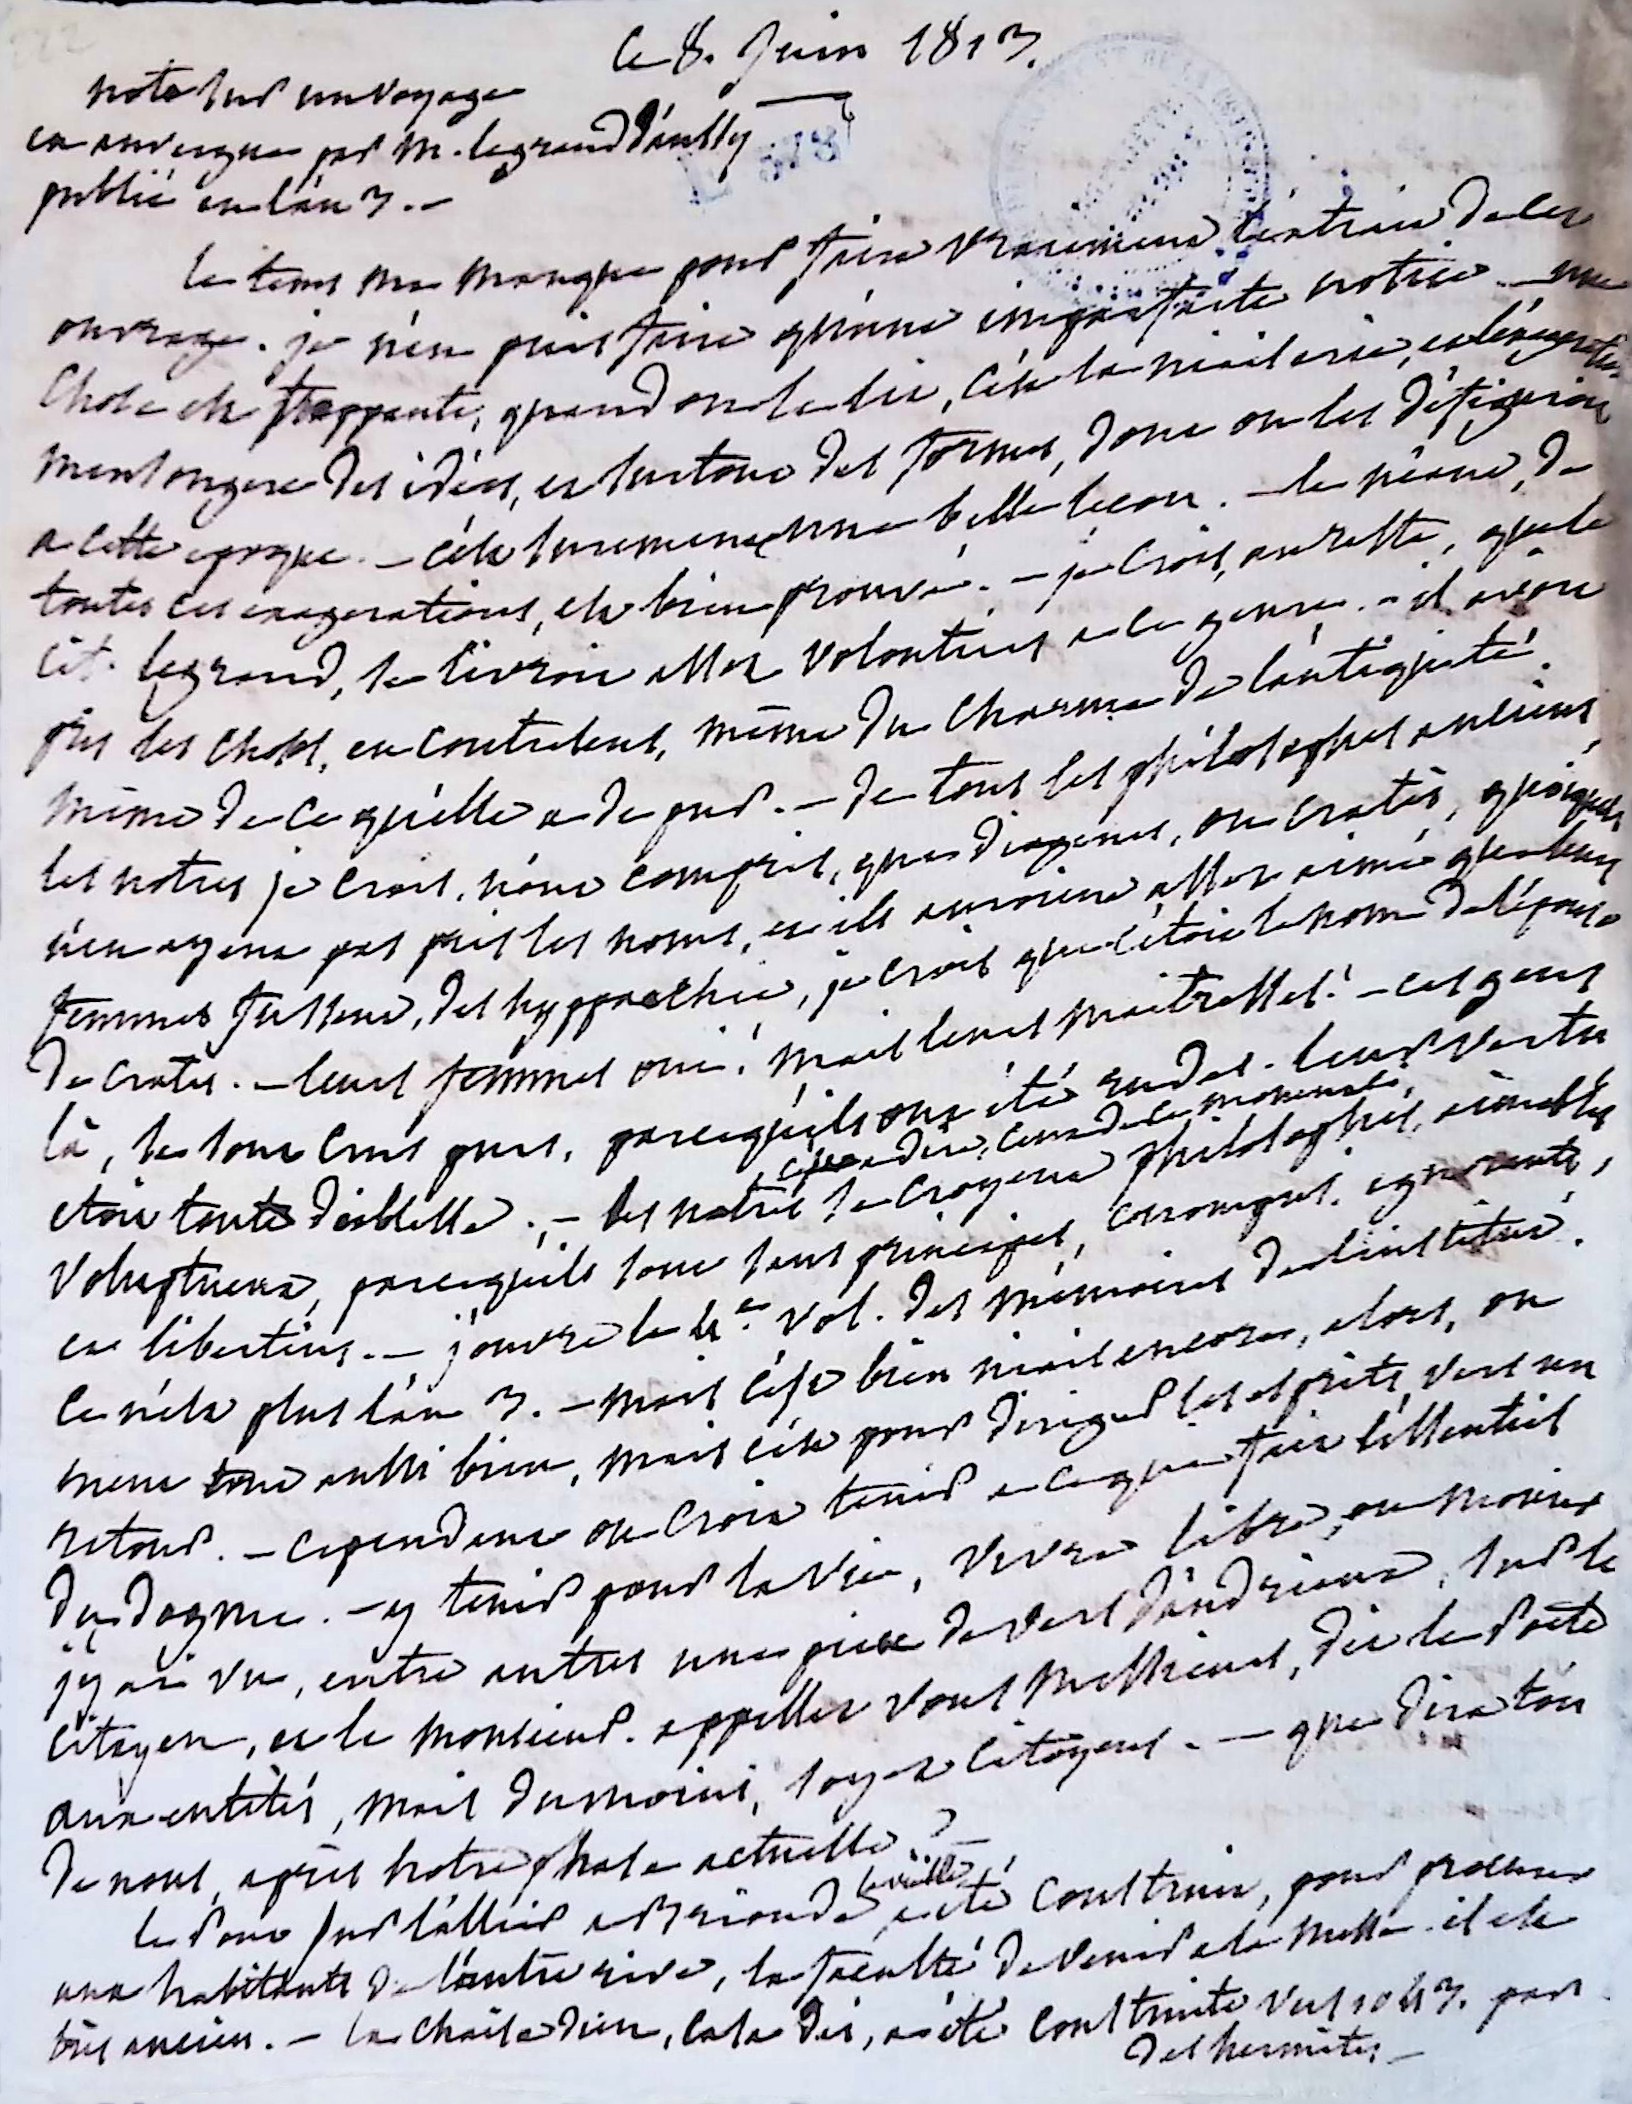 le 8. Juin 1813.
note sur un voyage
en auvergne par M. legrand d'aussy
publié en l'an 3. —
le tems me manque pour faire vraiment l'extrait de cet
ouvrage. je n'en puis faire qu'une imparfaite notice. — une
chose est frappante, quand on le lit, c'est la niaiserie, et l'exageration
mensongere des idées, et surtout des formes, dont on les défiguroit
a cette epoque. — c'est surement une belle leçon. — le néant, de
toutes ces exagerations, est bien prouvé. — je crois, au reste, que le
cit. legrand, se livroit assez volontiers a ce genre. — il avoit
pris les choses, en contresens, même du charme de l'antiquité,
même de ce qu'elle a de pur. — de tous les philosophes anciens,
les notres je crois, n'ont compris, que diogenes, ou cratès, quoiqu'ils
n'en ayent pas pris les noms, et ils auroient assez aimé que leurs
femmes fussent, des hypparchie, je crois que c'étoit le nom de l'épouse
de cratès. — leurs femmes oui! mais leurs maitresses! — ces gens
là, se sont crus purs, parcequ'ils ont été rudes. leur vertu
c'est a dire, ceux de ce moment là,
etoit toute diablesse. — les notres se croyent philosophes, aimables
voluptueux, parcequ'ils sont sans principes, corrompus, ignorants,
et libertins. — j'ouvre le 4e. vol. des mémoires de l'institut.
ce n'est plus l'an 3. — mais c'est bien niais encore, alors, on
ment tout aussi bien, mais c'est pour diriger les esprits vers un
retour. — cependant on croit tenir a ce qui fait l'essentiel
du dogme. — y tenir pour la vie, vivre libre, ou mourir
j'y ai vu, entre autres une piece de vers d'andrieux, sur le
citoyen, et le monsieur. appellez vous messieurs, dit le Poete
aux entêtés, mais du moins, soyez citoyens. — que dira t'on
de nous, après notre phase actuelle?
le Pont sur l'allier a Brioude la vieille a été construit, pour procurer
aux habitants de l'autre rive, la faculté de venir a la messe. il est
très ancien. — la chaise dieu, casa dei, a été construite vers 1043. par
des hermites. —